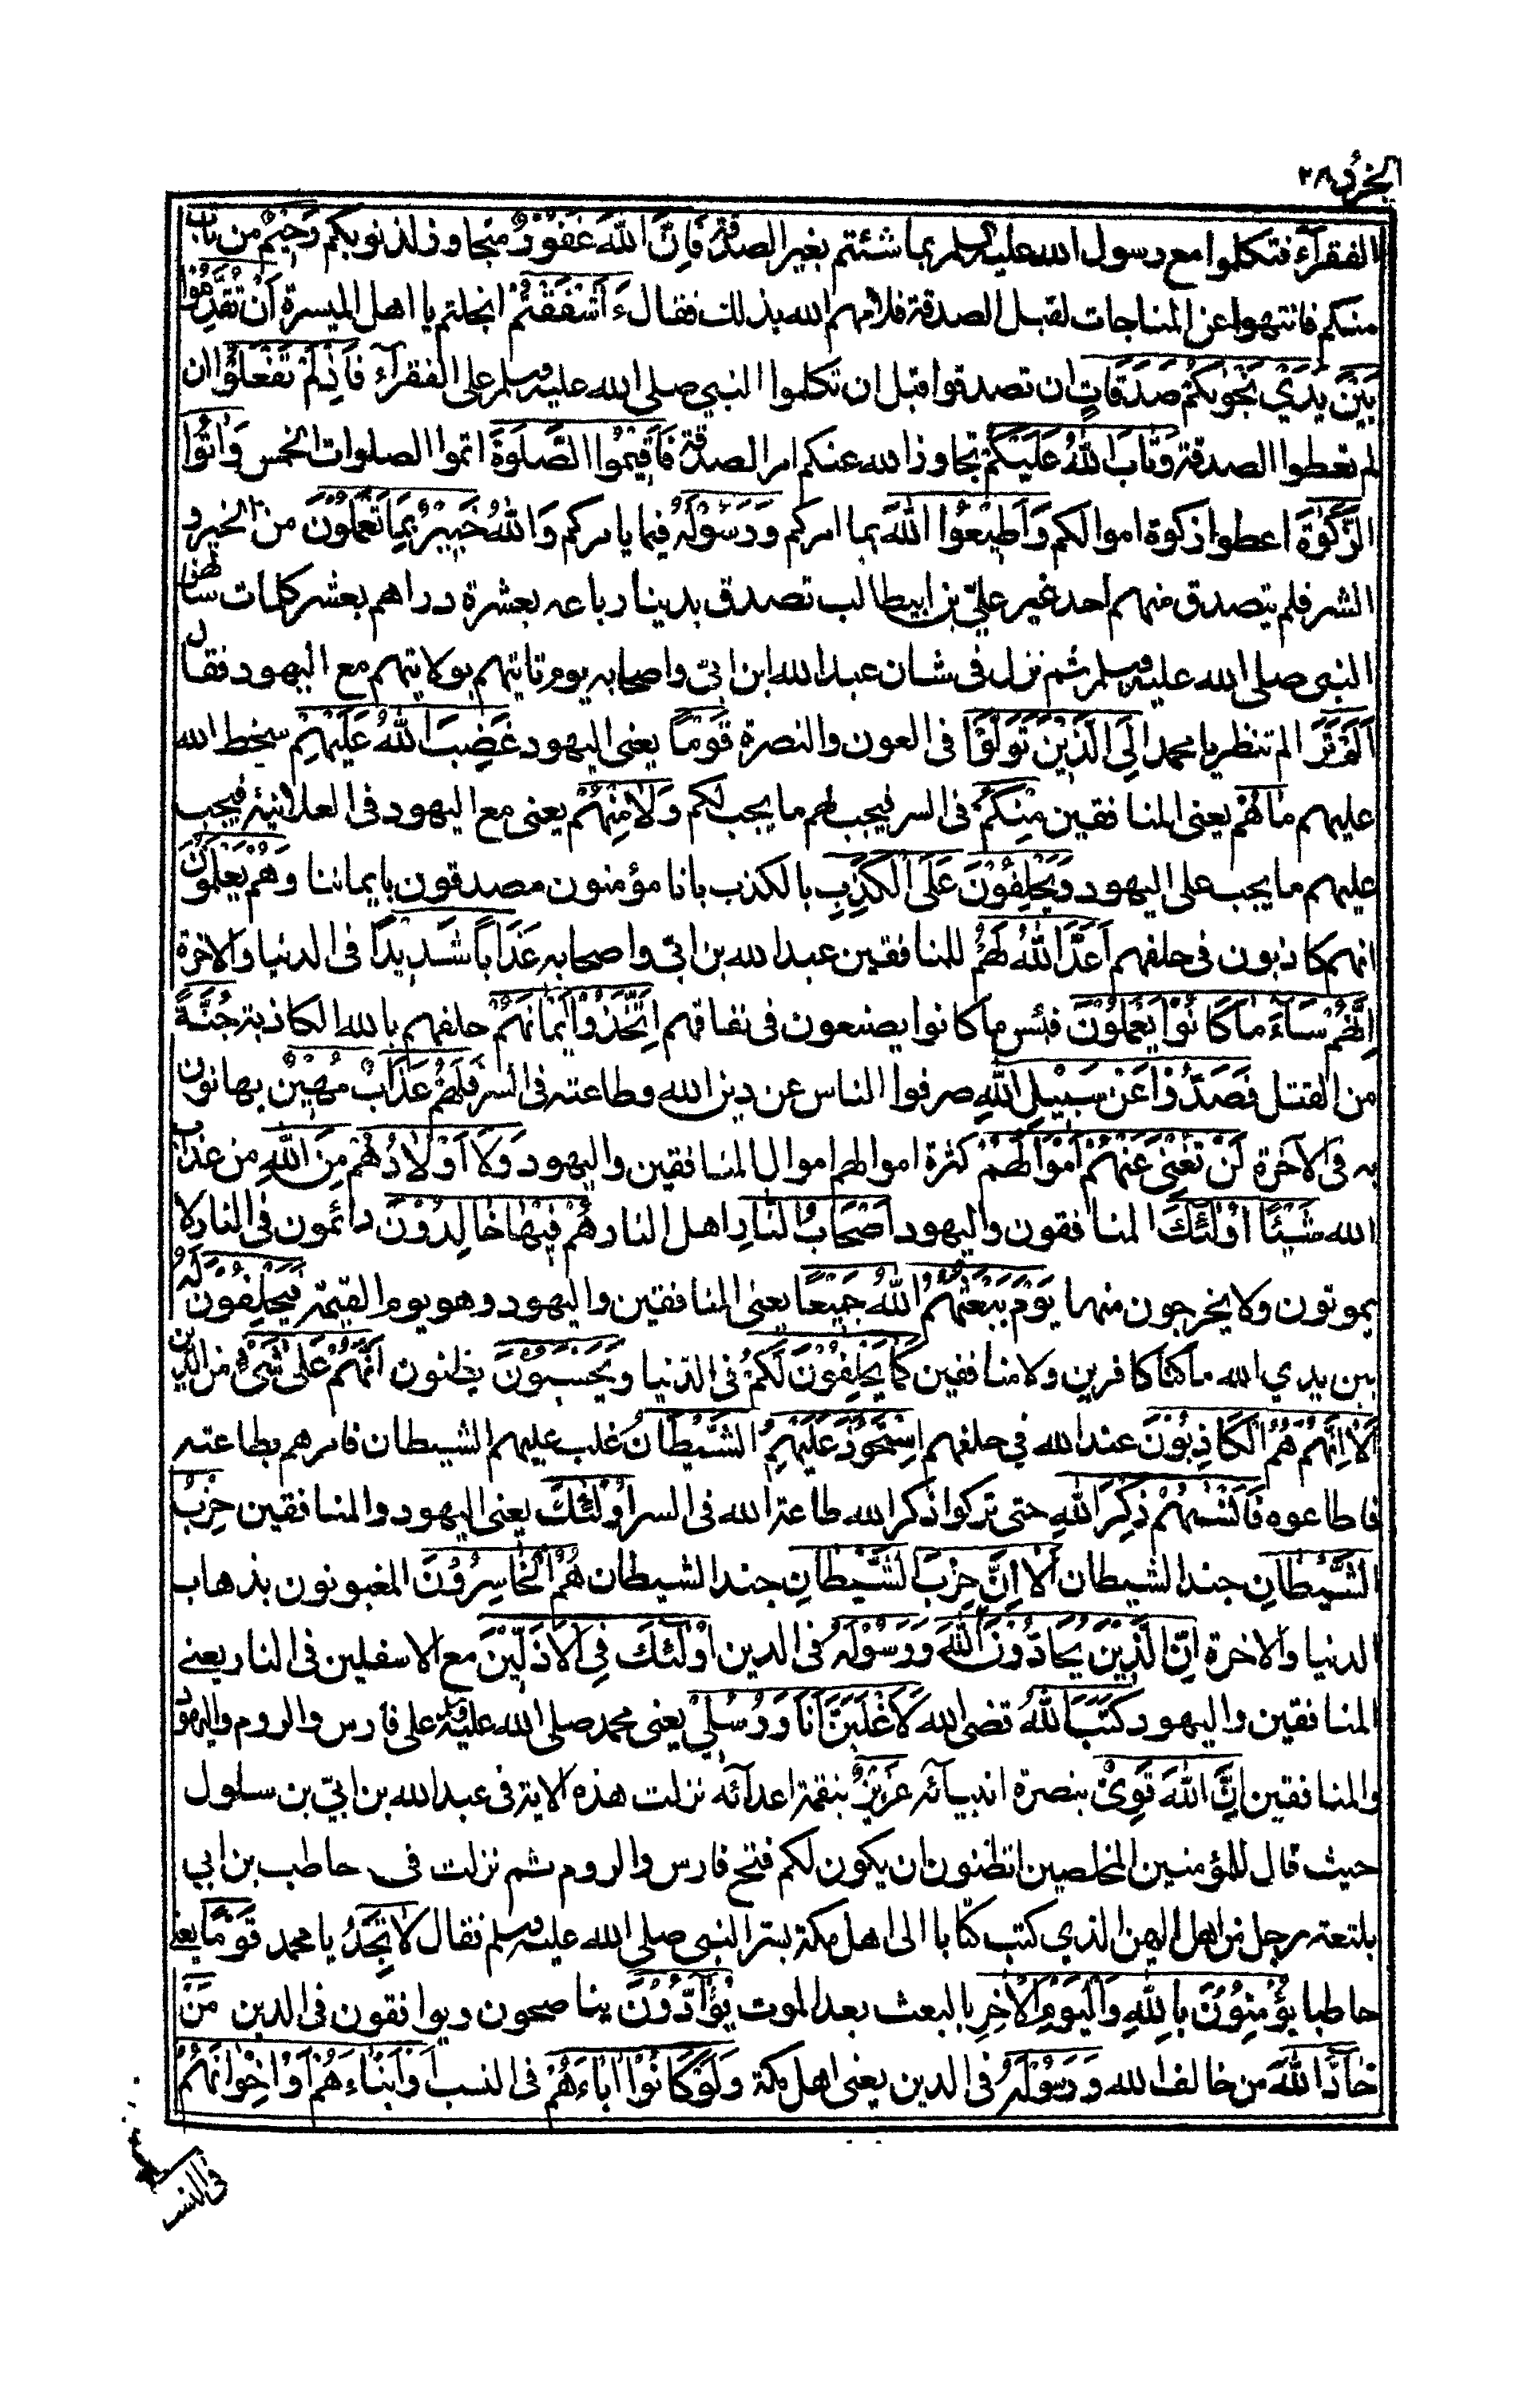 الجزء ٢٨
الفقرآء فتكلموا مع رسول الله عليه السلم بما شئتم بغير الصدقة فَاِنَّ اللّٰهَ غَفُوْرٌ متجاوز لذنوبكم رَحِيْمٌ من تاب
منكم فانتهوا عن المناجات لقبل الصدقة فلامهم الله بذلك فقال ءَاَشْفَقْتُمْ ابخلتم يا اهل الميسرة اَنْ تُقَدِّمُوْا
بَيْنَ يَدَيْ نَجْوٰىكُمْ صَدَقَاتٍ ان تصدقوا قبل ان تكلموا النبي صلى الله عليه وسلم على الفقرآء فَاِذْ لَمْ تَفْعَلُوْا ان
لم تعطوا الصدقة وَتَابَ اللّٰهُ عَلَيْكُمْ تجاوز الله عنكم امر الصدقة فَاَقِيْمُوا الصَّلٰوةَ اتموا الصلوات الخمس وَاٰتُوا
الزَّكٰوةَ اعطوا زكوة اموالكم وَاَطِيْعُوا اللّٰهَ بما امركم وَرَسُوْلَهٗ فيما يامركم وَاللّٰهُ خَبِيْرٌ بِمَا تَعْمَلُوْنَ من الخير و
الشر فلم يتصدق منهم احد غير عليّ بن ابيطالب تصدق بدينار باعه بعشرة دراهم بعشر كلمات سالهن
النبى صلى الله عليه وسلم ثم نزل فى شان عبد الله ابن ابىّ واصحابه يوم تايتهم بولايتهم مع اليهود فقال
اَلَمْ تَرَ الم تنظر يا محمد اِلَى الَّذِيْنَ تَوَلَّوْا فى العون والنصرة قَوْمًا يعنى اليهود غَضِبَ اللّٰهُ عَلَيْهِمْ سخط الله
عليهم مَا هُمْ يعنى المنافقين مِنْكُمْ فى السر فيجب لهم ما يجب لكم وَلَا مِنْهُمْ يعنى مع اليهود فى العلانية فيجب
عليهم ما يجب على اليهود وَيَحْلِفُوْنَ عَلَى الْكَذِبِ بالكذب بانا مؤمنون مصدقون بايماننا وَهُمْ يَعْلَمُوْنَ
انهم كاذبون فى حلفهم اَعَدَّ اللّٰهُ لَهُمْ للمنافقين عبد الله بن ابىّ واصحابه عَذَابًا شَدِيْدًا فى الدنيا والاخرة
اِنَّهُمْ سَآءَ مَا كَانُوْا يَعْمَلُوْنَ فبئس ما كانوا يصنعون فى نفاقهم اِتَّخَذُوْا اَيْمَانَهُمْ حلفهم بالله الكاذبة جُنَّةً
من القتل فَصَدُّوْا عَنْ سَبِيْلِ اللّٰهِ صرفوا الناس عن دين الله وطاعته فى السر فَلَهُمْ عَذَابٌ مُهِيْنٌ يهانون
به فى الاخرة لَنْ تُغْنِىَ عَنْهُمْ اَمْوَالُهُمْ كثرة اموالهم اموال المنافقين واليهود وَلَا اَوْلَادُهُمْ مِنَ اللّٰهِ من عذاب
الله شَيْئًا اُولٰٓئِكَ المنافقون واليهود اَصْحَابُ النَّارِ اهل النار هُمْ فِيْهَا خَالِدُوْنَ دائمون فى النار لا
يموتون ولا يخرجون منها يَوْمَ يَبْعَثُهُمُ اللّٰهُ جَمِيْعًا يعنى المنافقين واليهود وهو يوم القيمة فَيَحْلِفُوْنَ لَهٗ
بين يدي الله ما كنا كافرين ولا منافقين كَمَا يَحْلِفُوْنَ لَكُمْ فى الدنيا وَيَحْسَبُوْنَ يظنون اَنَّهُمْ عَلٰى شَىْءٍ من الدين
اَلَا اِنَّهُمْ هُمُ الْكَاذِبُوْنَ عند الله في حلفهم اِسْتَحْوَذَ عَلَيْهِمُ الشَّيْطَانُ غلب عليهم الشيطان فامرهم بطاعته
فاطاعوه فَاَنْسٰىهُمْ ذِكْرَ اللّٰهِ حتى تركوا ذكر الله طاعة الله فى السر اُولٰٓئِكَ يعنى اليهود والمنافقين حِزْبُ
الشَّيْطَانِ جند الشيطان اَلَا اِنَّ حِزْبَ الشَّيْطَانِ جند الشيطان هُمُ الْخَاسِرُوْنَ المغبونون بذهاب
الدنيا والاخرة اِنَّ الَّذِيْنَ يُحَادُّوْنَ اللّٰهَ وَرَسُوْلَهٗ فى الدين اُولٰٓئِكَ فِى الْاَذَلِّيْنَ مع الاسفلين فى النار يعنے
المنافقين واليهود كَتَبَ اللّٰهُ قضى الله لَاَغْلِبَنَّ اَنَا وَرُسُلِيْ يعنى محمد صلى الله عليه وسلم على فارس والروم واليهود
والمنافقين اِنَّ اللّٰهَ قَوِىٌّ بنصرة انبيائه عَزِيْزٌ بنقمة اعدآئه نزلت هذه الاية فى عبد الله بن ابيّ بن سلول
حيث قال للمؤمنين المخلصين اتظنون ان يكون لكم فتح فارس والروم ثم نزلت فى حاطب بن ابي
بلتعة رجل من اهل اليمن الذي كتب كتابا الى اهل مكة بسر النبى صلى الله عليه وسلم فقال لَا تَجِدُ يا محمد قَوْمًا يعنے
حاطبا يُؤْمِنُوْنَ بِاللّٰهِ وَالْيَوْمِ الْاٰخِرِ بالبعث بعد الموت يُوَآدُّوْنَ يناصحون ويوافقون فى الدين مَنْ
حَآدَّ اللّٰهَ من خالف الله وَرَسُوْلَهٗ فى الدين يعنى اهل مكة وَلَوْ كَانُوْا اٰبَآءَهُمْ فى النسب اَوْ اَبْنَآءَهُمْ اَوْ اِخْوَانَهُمْ
فى النسب